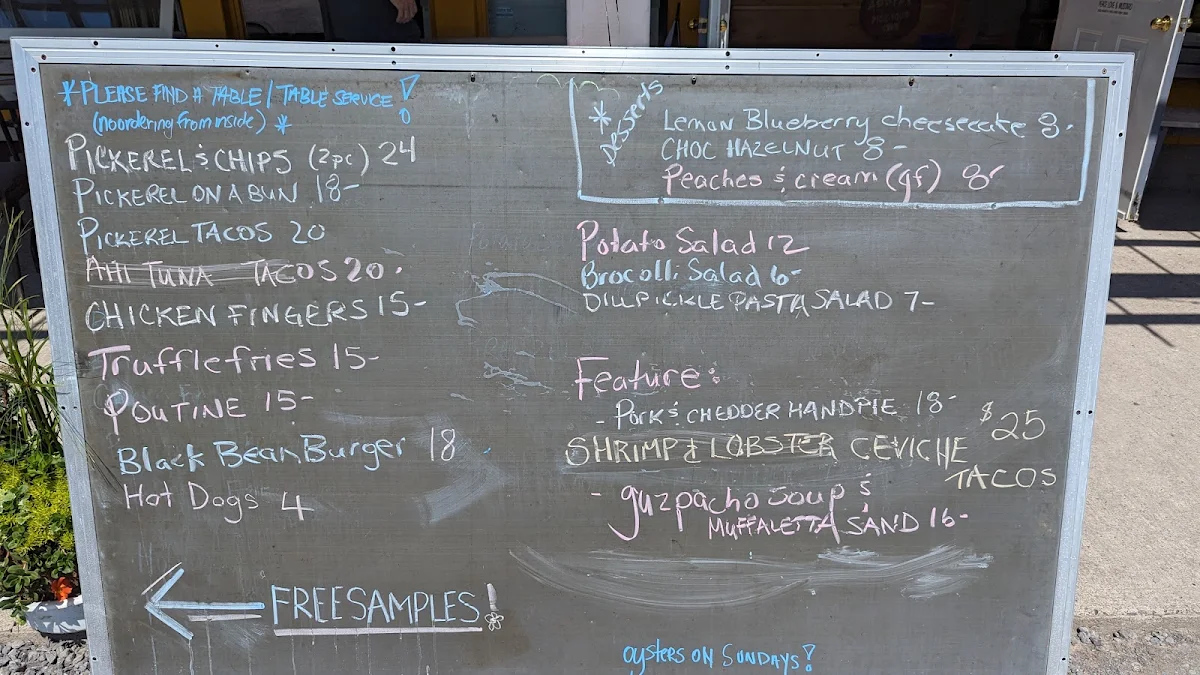 *PLEASE FIND A TABLE / TABLE SERVICE!
(no ordering from inside) *
PICKEREL & CHIPS (2pc) 24
PICKEREL ON A BUN 18-
PICKEREL TACOS 20
AHI TUNA TACOS 20.
CHICKEN FINGERS 15-
Truffle fries 15-
POUTINE 15-
Black Bean Burger 18
Hot Dogs 4
FREE SAMPLES!
* Desserts
Lemon Blueberry cheesecake 8.
CHOC HAZELNUT 8-
Peaches & cream (gf) 8-
Potato Salad 12
Brocolli Salad 6-
DILL PICKLE PASTA SALAD 7-
Feature:
- Pork & CHEDDER HANDPIE 18-
SHRIMP & LOBSTER CEVICHE
TACOS
$25
- guzpacho soup &
MUFFALETTA SAND 16-
oysters ON SUNDAYS!